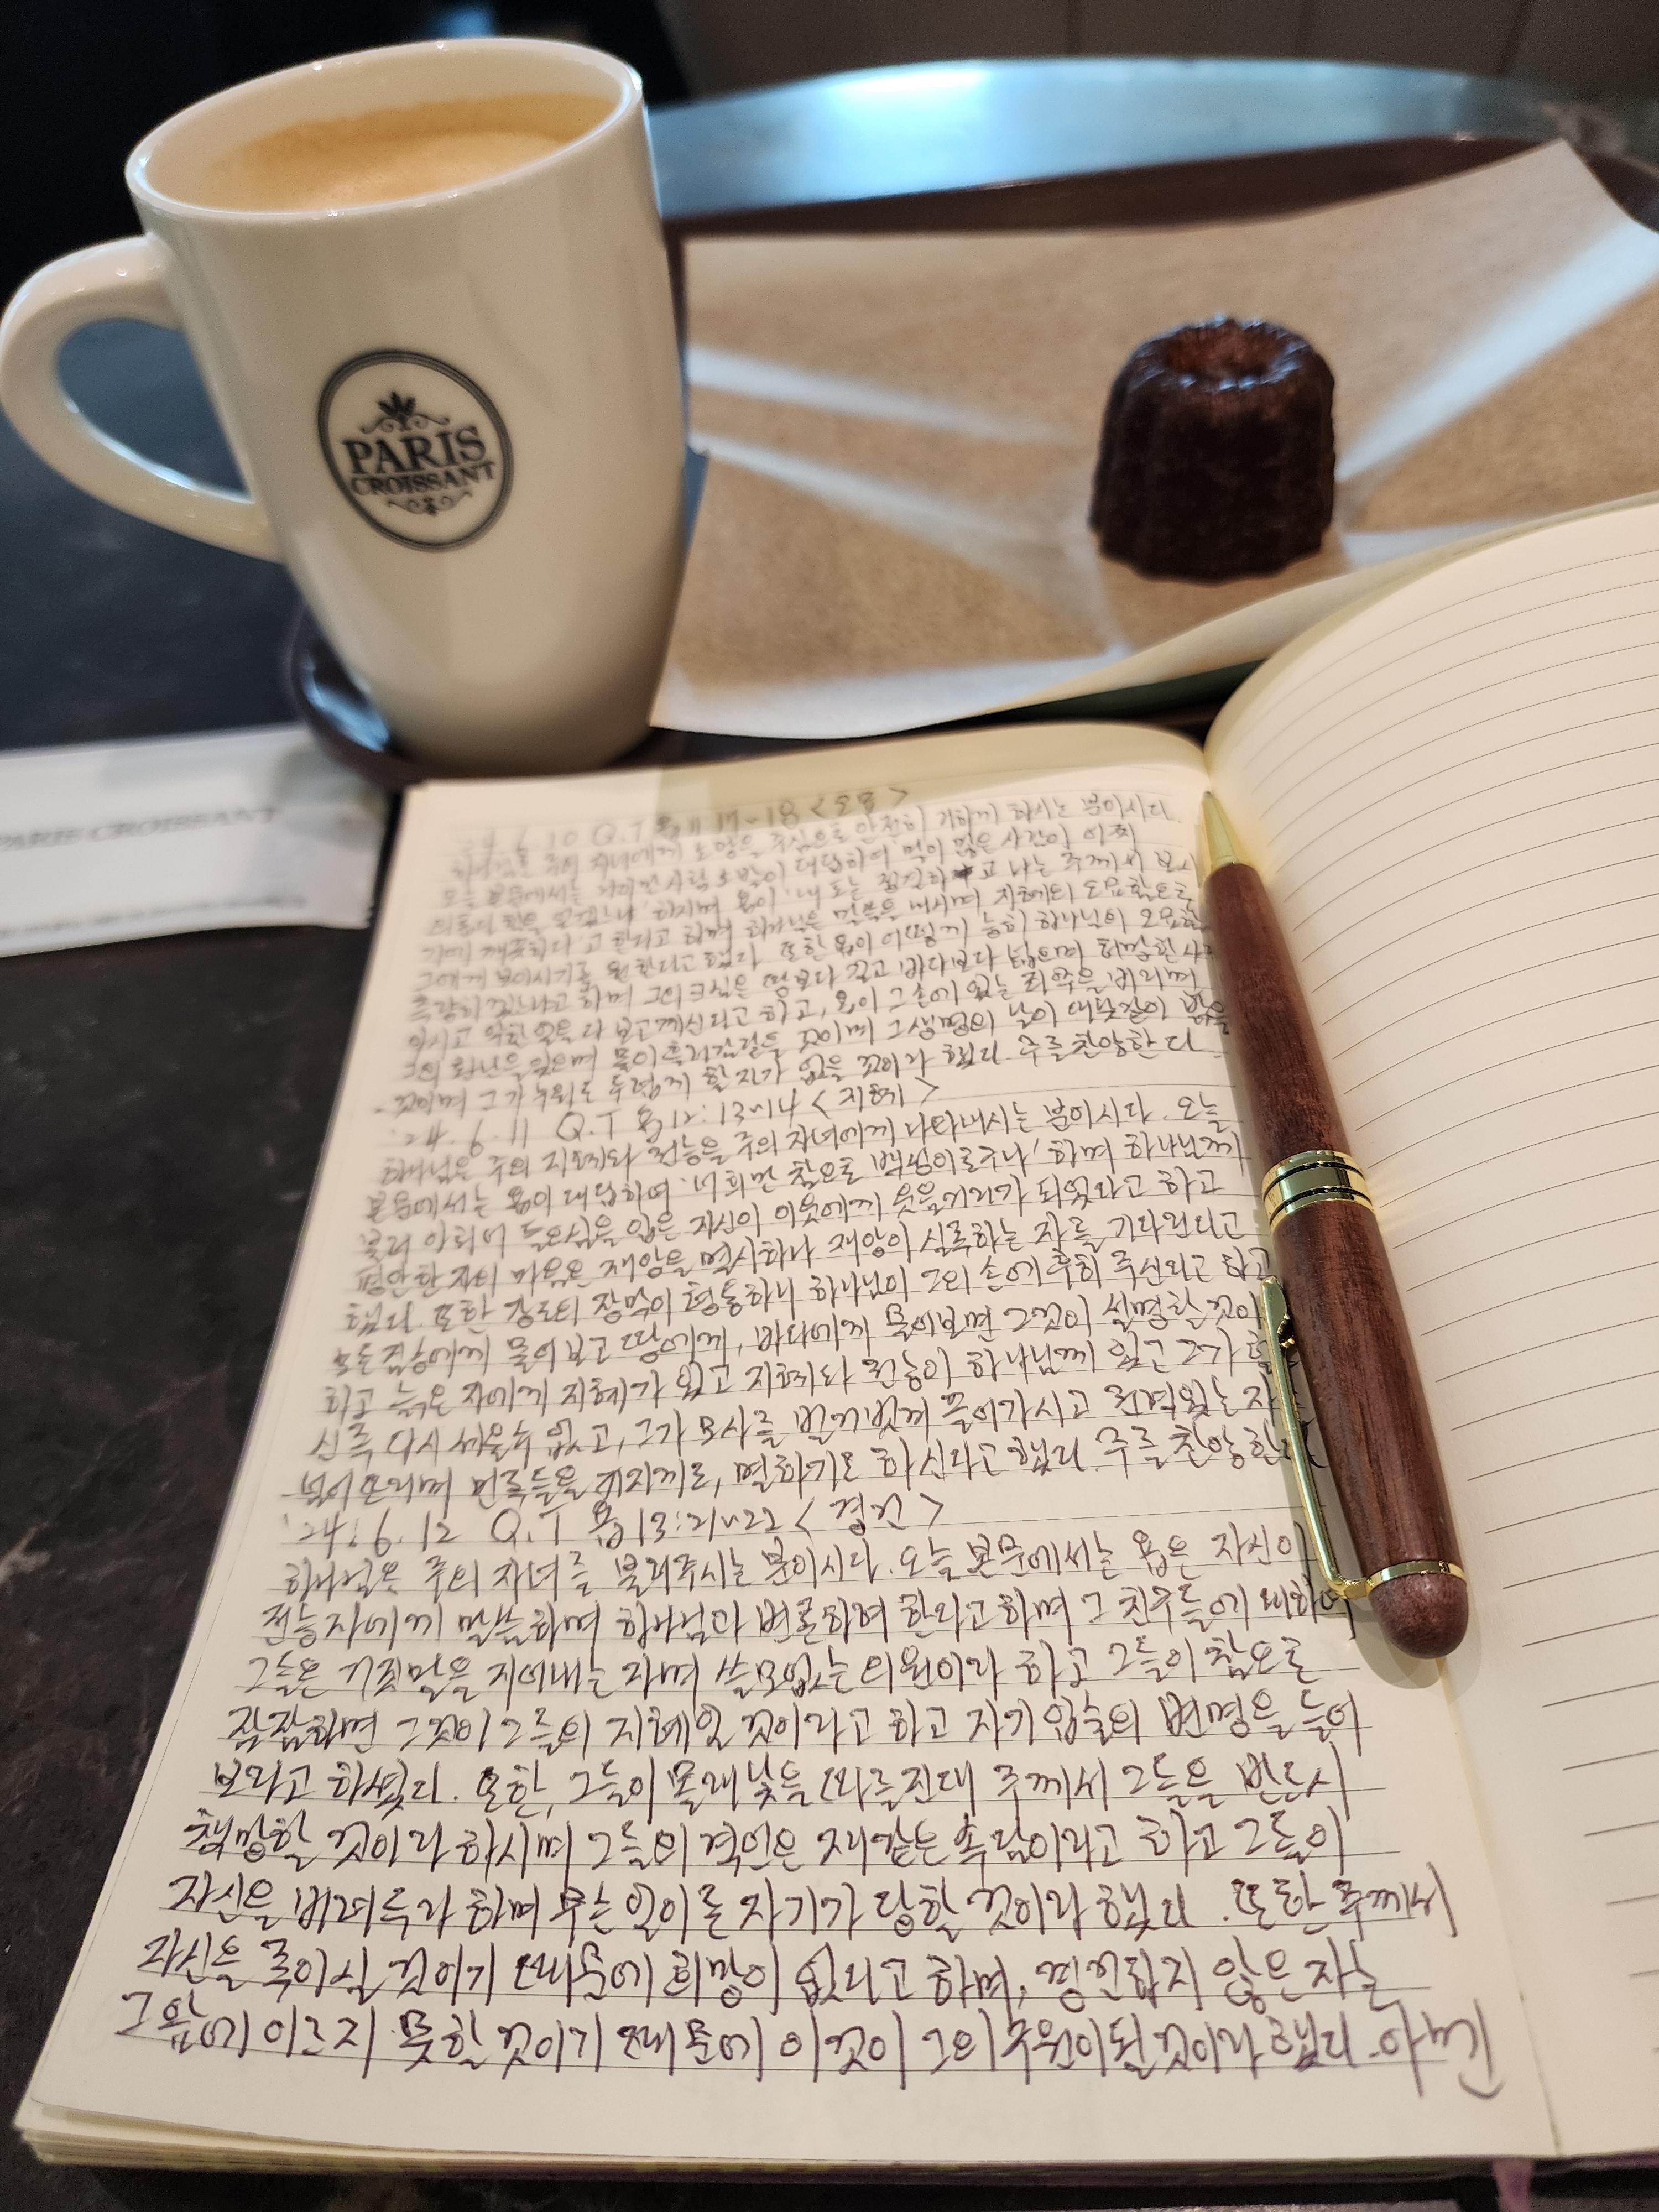 PARIS
CROISSANT
PARIS CROISSANT
24.6.10 Q.T 욥 11:17-18 <소망>
하나님은 주의 자녀에게 소망을 주심으로 안전히 거하게 하시는 분이시다.
오늘 본문에서는 나아마 사람 소발이 대답하여 말이 많은 사람이 어찌
의롭다 함을 얻겠느냐 하시며 욥이 '내 도는 정결하고 나는 주께서 보시
기에 깨끗하다'고 한다고 하며 하나님은 말씀을 내시며 지혜의 오묘함으로
그에게 보이시기를 원한다고 했다. 또한 욥이 어떻게 능히 하나님의 오묘함
측량하겠느냐고 하며 그의 크심은 땅보다 길고 바다보다 넓으며 허망한 사
아시고 악한 일을 다 보고계신다고 하고, 욥이 그 손에 있는 죄악을 버리며
그의 환난을 잊으며 물이 흘러감같을 것이며 그 생명의 날이 대낮같이 밝을
것이며 그가 누워도 두렵게 할 자가 없을 것이라 했다. 주를 찬양한다.
'24.6.11 Q.T 욥12:13~14 <지혜>
하나님은 주의 지혜와 권능을 주의 자녀에게 나타내시는 분이시다. 오늘
본문에서는 욥이 대답하여 '너희만 참으로 백성이로구나' 하며 하나님께
불러 아뢰어 들으심을 입은 자신이 이웃에게 웃음거리가 되었다고 하고
평안한 자의 마음은 재앙을 멸시하나 재앙이 실족하는 자를 기다린다고
했다. 또한 강도의 장막이 형통하니 하나님이 그의 손에 후히 주신다고 하고
모든 짐승에게 물어보고 땅에게, 바다에게 물어보면 그것이 설명할 것이
하고 늙은 자에게 지혜가 있고 지혜와 권능이 하나님께 있고 그가 헐
신즉 다시 세울수 없고, 그가 모사를 벌거벗겨 끌어가시고 권력있는 자
넘어뜨리며 민족들을 커지게도, 멸하기도 하신다고 했다. 주를 찬양한
'24.6.12 Q.T 욥13:21~22 <경건>
하나님은 주의 자녀를 불러주시는 분이시다. 오늘 본문에서는 욥은 자신이
전능자에게 말씀하며 하나님과 변론하려 한다고 하며 그 친구들에 대하여
그들은 거짓말을 지어내는 자며 쓸모없는 의원이라 하고 그들이 참으로
잠잠하면 그것이 그들의 지혜일 것이라고 하고 자기 입술의 변명을 들어
보라고 하셨다. 또한, 그들이 몰래 낯을 따를진대 주께서 그들을 반드시
책망할 것이라 하시며 그들의 격언은 재같은 속담이라고 하고 그들이
자신을 버려두라 하며 무슨 일이든 자기가 당할 것이라 했다. 또한 주께서
자신을 죽이실 것이기 때문에 희망이 없다고 하며, 경건하지 않은 자는
그 앞에 이르지 못할 것이기 때문에 이것이 그의 구원이 될 것이라 했다. 아멘